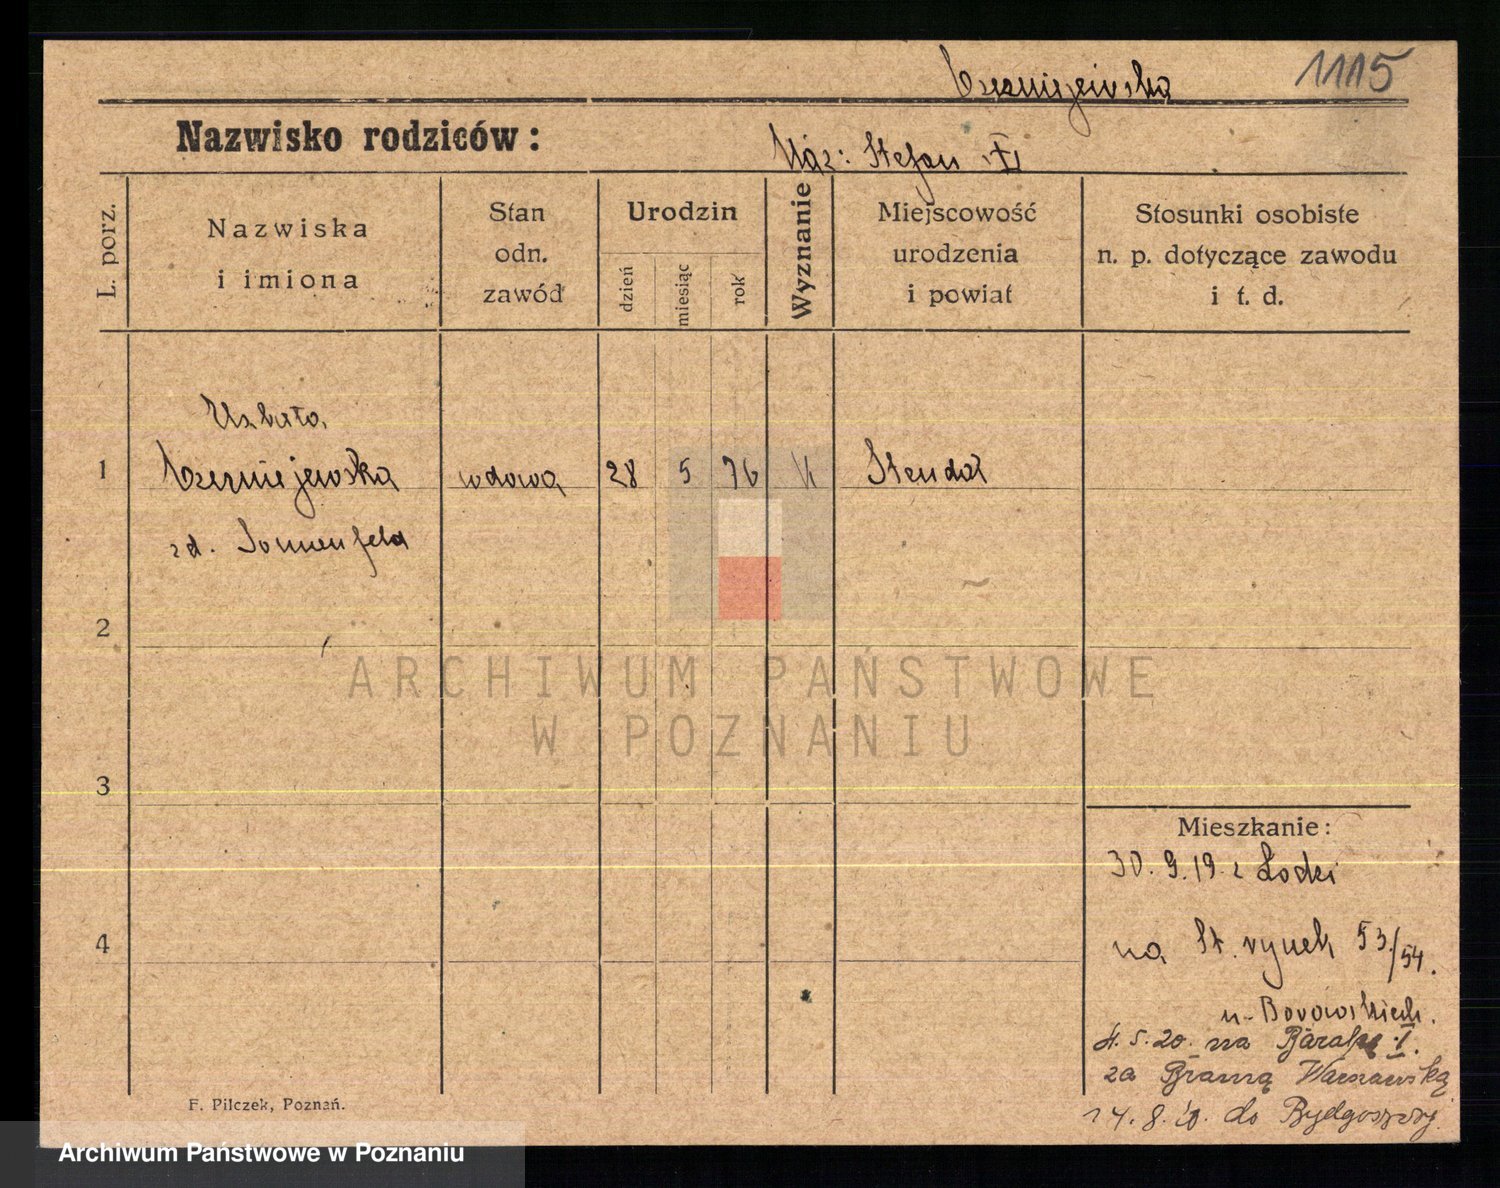 Czerniejewska
1115
Nazwisko rodziców:
Mąż: Stefan
L. porz.
Nazwiska
i imiona
Stan
odn.
zawód
Urodzin
dzień
miesiąc
rok
Wyznanie
Miejscowość
urodzenia
i powiat
Stosunki osobiste
n. p. dotyczące zawodu
i t. d.
1
Czerniejewska
wdowa
28
5
76
Stendal
zd. Sonnenfeld
2
3
4
Mieszkanie:
30.9.19 z Łodzi
na St. rynek 53/54.
u Borowskich.
4.5.20. na Baraki I.
za Bramą Warszawską
14.8.20 do Bydgoszczy.
F. Pilczek, Poznań.
ARCHIWUM PAŃSTWOWE
W POZNANIU
Archiwum Państwowe w Poznaniu